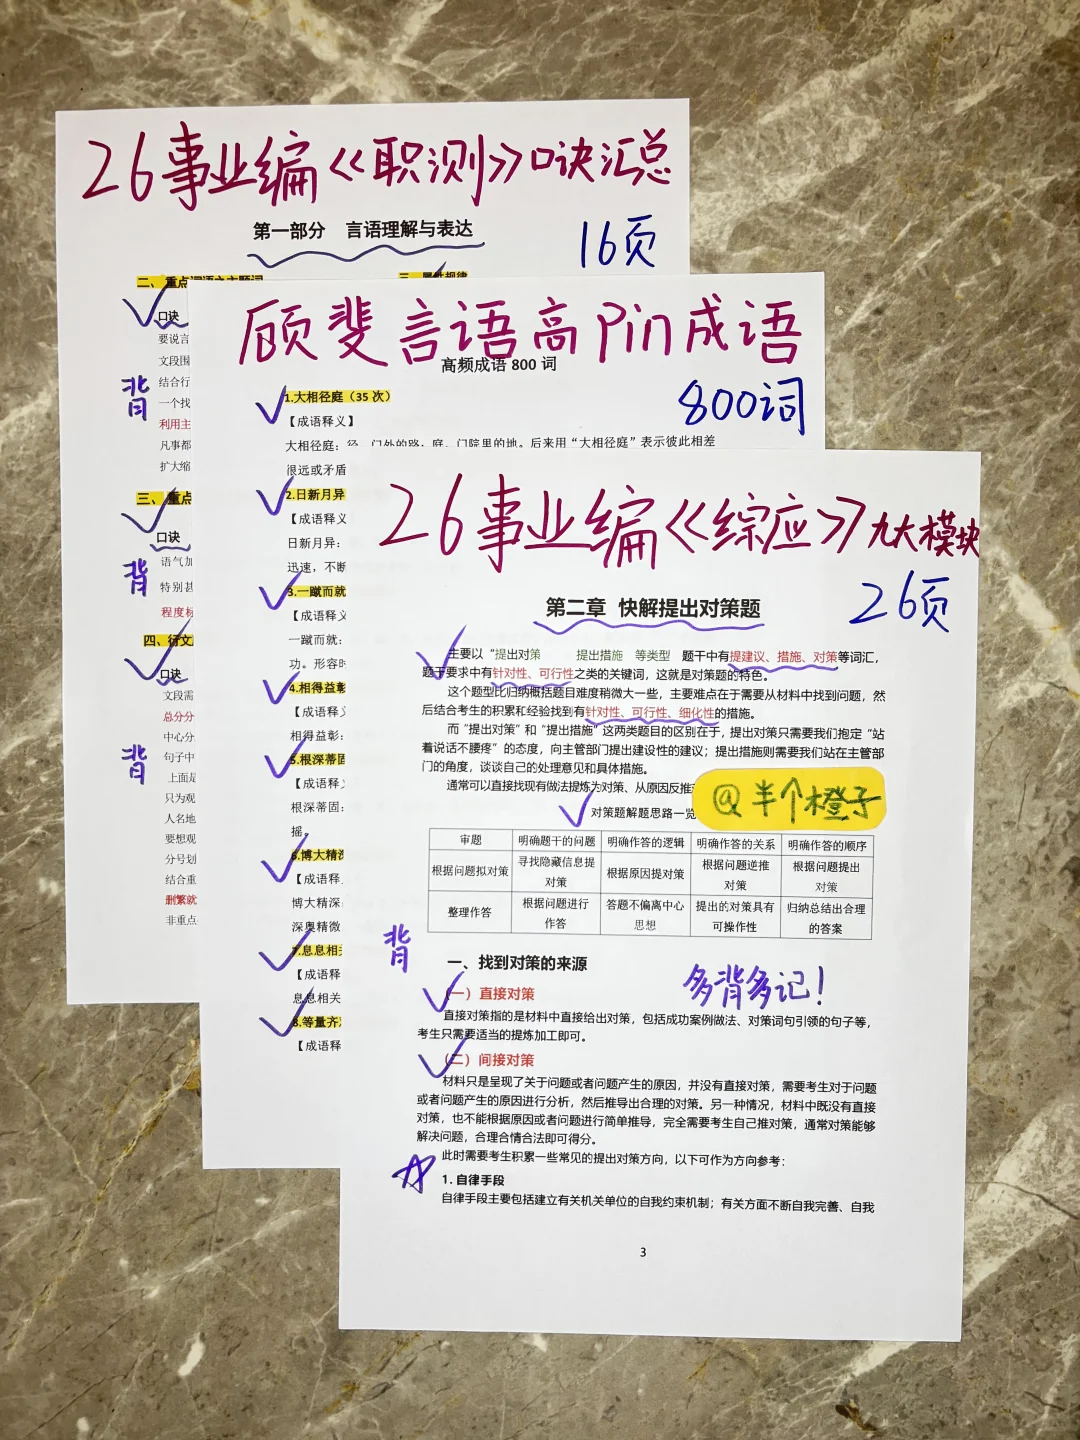 26事业编《职测》口诀汇总
第一部分 言语理解与表达
16页
二、重点词语之主题词
三、属性规律
口诀
要说言
文段围
背
结合行
一个找
利用主
凡事都
扩大缩
三、重点
口诀
语气加
背
特别甚
程度标
四、行文
口诀
文段需
总分分
中心分
背
句子中
上面是
只为观
人名地
要想观
分号划
结合重
删繁就
非重点
顾斐言语高Pin成语
高频成语 800 词
800词
1.大相径庭（35 次）
【成语释义】
大相径庭：径，门外的路；庭，门院里的地。后来用“大相径庭”表示彼此相差
很远或矛盾
2.日新月异
【成语释义
日新月异：
迅速，不断
3.一蹴而就
【成语释义
一蹴而就：
功。形容时
4.相得益彰
【成语释义
相得益彰：
5.根深蒂固
【成语释
根深蒂固：
摇。
6.博大精深
【成语释
博大精深
深奥精微
7.息息相关
【成语释
息息相关
8.等量齐
【成语释
26事业编《综应》九大模块
26页
第二章 快解提出对策题
主要以“提出对策 提出措施 等类型 题干中有提建议、措施、对策等词汇，
题干要求中有针对性、可行性之类的关键词，这就是对策题的特色。
这个题型比归纳概括题目难度稍微大一些，主要难点在于需要从材料中找到问题，然
后结合考生的积累和经验找到有针对性、可行性、细化性的措施。
而“提出对策”和“提出措施”这两类题目的区别在于，提出对策只需要我们抱定“站
着说话不腰疼”的态度，向主管部门提出建设性的建议；提出措施则需要我们站在主管部
门的角度，谈谈自己的处理意见和具体措施。
通常可以直接找现有做法提炼为对策、从原因反推
@半个橙子
对策题解题思路一览
审题 明确题干的问题 明确作答的逻辑 明确作答的关系 明确作答的顺序
根据问题拟对策 寻找隐藏信息提对策 根据原因提对策 根据问题逆推对策 根据问题提出对策
整理作答 根据问题进行作答 答题不偏离中心思想 提出的对策具有可操作性 归纳总结出合理的答案
背
一、找到对策的来源
多背多记！
（一）直接对策
直接对策指的是材料中直接给出对策，包括成功案例做法、对策词句引领的句子等，
考生只需要适当的提炼加工即可。
（二）间接对策
材料只是呈现了关于问题或者问题产生的原因，并没有直接对策，需要考生对于问题
或者问题产生的原因进行分析，然后推导出合理的对策。另一种情况，材料中既没有直接
对策，也不能根据原因或者问题进行简单推导，完全需要考生自己推对策，通常对策能够
解决问题，合理合情合法即可得分。
此时需要考生积累一些常见的提出对策方向，以下可作为方向参考：
1. 自律手段
自律手段主要包括建立有关机关单位的自我约束机制；有关方面不断自我完善、自我
3